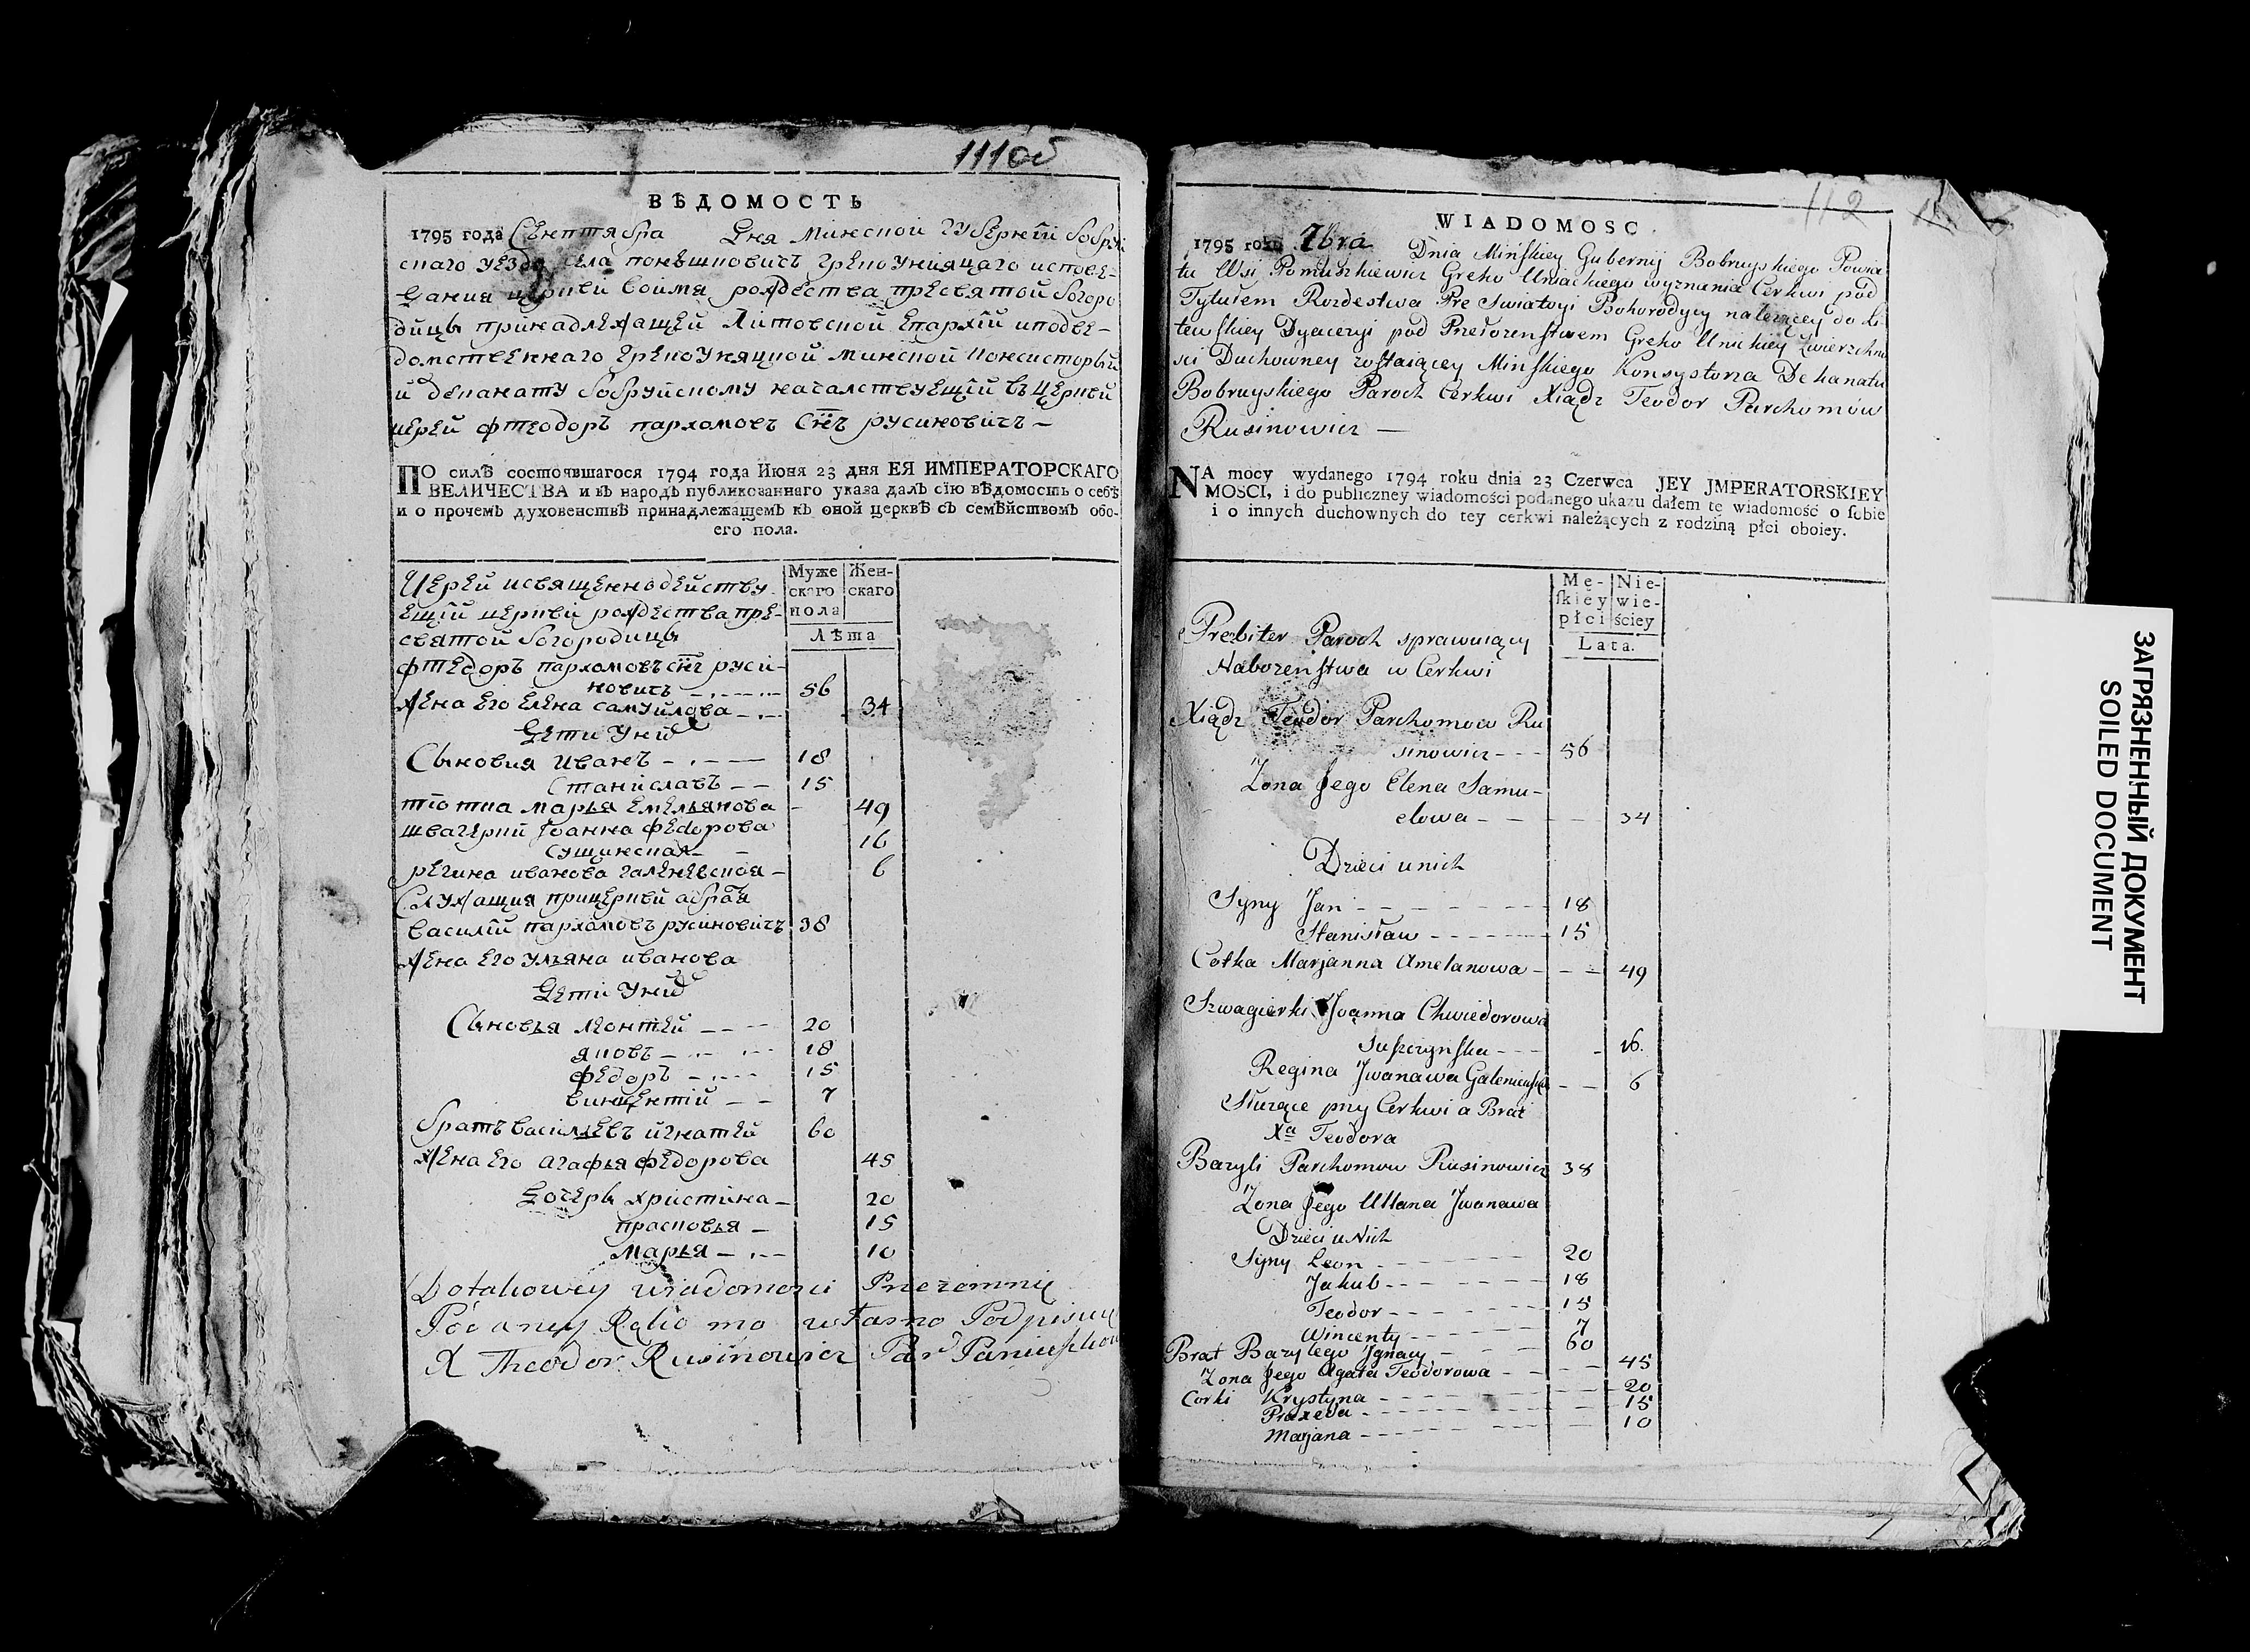 111об
ВѢДОМОСТЬ
1795 года Сентября Дня Минской Губернїи Бобруй
скаго уезда села понѣшковичъ грекоунияцкаго испове-
дания церкви воимя рождества пресвятой богоро
дицы принадлежащей Литовской Епархїи иподве-
домственнаго грекоуняцкой минской консисторыи
и деканату бобруйскому началствуещїй въ церкви
иерей фтеодоръ пархомовъ Снъ русиновичъ —
ПО силѣ состоявшагося 1794 года Июня 23 дня ЕЯ ИМПЕРАТОРСКАГО
ВЕЛИЧЕСТВА и въ народъ публикованнаго указа далъ сїю вѣдомость о себѣ
и о прочемъ духовенствѣ принадлежащемъ къ оной церквѣ съ семѣйствомъ обо-
его пола.
Муже Жен-
скаго скаго
пола
Лѣта
Иерей исвященнодейству
ещїй церкви рождества пре-
святой богородицы
фтедоръ пархомовъ снъ руси-
новичъ — 56
жена его елена самуйлова — 34
Дети унид
Сыновия иванъ — 18
Станиславъ — 15
тіотка марья емельянова — 49
швагерки Іоанна федорова
сущинская — 16
регина иванова галеневская — 6
Служащия прицеркви абрат
василїй пархомовъ русиновичъ 38
жена его ульяна иванова
Дети унид
Сыновья леонтей — 20
яковъ — 18
федоръ — 15
винцентїй — 7
братъ васильевъ игнатей 60
жена его агафья федорова 45
дочерь христина — 20
прасковья — 15
марья — 10
Dotakowey wiadomosci Przezemnię
Podaney Ręką mo własną Podpisuię
X Theodor Rusinowicz Par
112
WIADOMOSC
1795 roku 7bra Dnia Mińskiey Gubernij Bobruyskiego Powia
tu Wsi Pomuszkiewicz Greko Uniackiego wyznania Cerkwi pod
Tytułem Rozdestwa Pre Swiatoyi Bohorodycy należącey do Li
tewskiey Dyacezyi pod Przełożenstwem Greko Unickiey Zwierzchno
sci Duchowney zostaiącey Mińskiego Konsystorza Dekanatu
Bobruyskiego Paroch Cerkwi Xiądz Teodor Parchomów
Rusinowicz —
NA mocy wydanego 1794 roku dnia 23 Czerwca JEY JMPERATORSKIEY
MOSCI, i do publiczney wiadomości podanego ukazu dałem tę wiadomość o sobie
i o innych duchownych do tey cerkwi należących z rodziną płci oboiey.
Mę- Nie-
skiey wie-
płci ściey
Lata.
Prezbiter Paroch sprawuiący
Nabozenstwa w Cerkwi
Xiądz Teodor Parchomow Ru
sinowicz --- 56
Zona Jego Elena Samu-
elowa --- 34
Dzieci unich
Syny Jan --- 18
Stanisław --- 15
Cotka Marjanna Amelanowa --- 49
Szwagierki Joanna Chwiedorowa
Suszczynska --- 16.
Regina Jwanawa Galeniewska -- 6
Służące przy Cerkwi a Brat
Xa Teodora
Bazyli Parchomow Rusinowicz 38
Zona Jego Ullana Jwanawa
Dzieci u Nich
Syny Leon --- 20
Jakub --- 18
Teodor --- 15
Wincenty --- 7
Brat Bazylego Jgnacy --- 60
Zona Jego Agata Teodorowa --- 45
Corki Krystyna --- 20
Praxeda --- 15
Marjana --- 10
ЗАГРЯЗНЕННЫЙ ДОКУМЕНТ
SOILED DOCUMENT